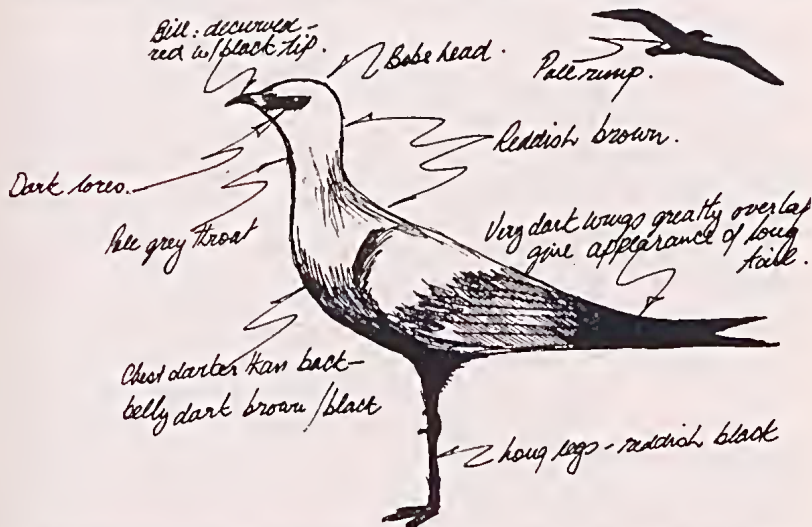 Bill: decurved -
red w/black tip.
Bobs head.
Pale rump.
Reddish brown.
Dark lores.
Pale grey throat
Very dark wings greatly overlap
give appearance of long
tail.
Chest darker than back -
belly dark brown/black
Long legs - reddish black